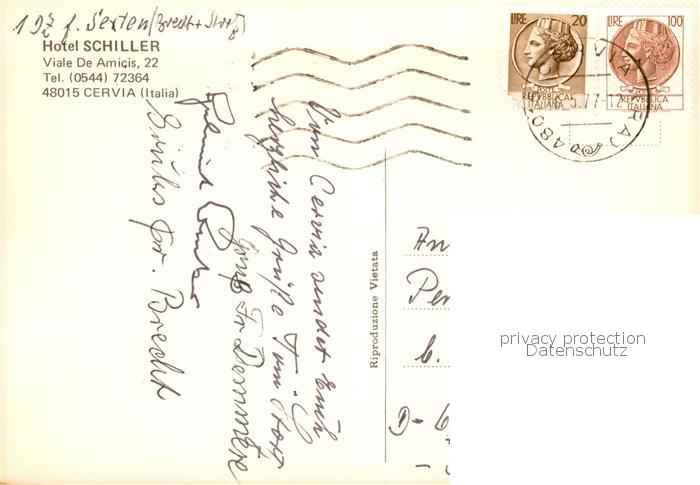 1 DZ f. Serten (Brecht + Storz)
Hotel SCHILLER
Viale De Amicis, 22
Tel. (0544) 72364
48015 CERVIA (Italia)
LIRE 20
REPVBBLICA
ITALIANA
LIRE 100
REPVBBLICA
ITALIANA
CERVIA
5.77-12
Von Cervia sendet Euch
herzliche Grüße Fam. Storz
Gruß Fr.
Gruß Fr. Brecht
Riproduzione Vietata
An
b.
D-6
privacy protection
Datenschutz